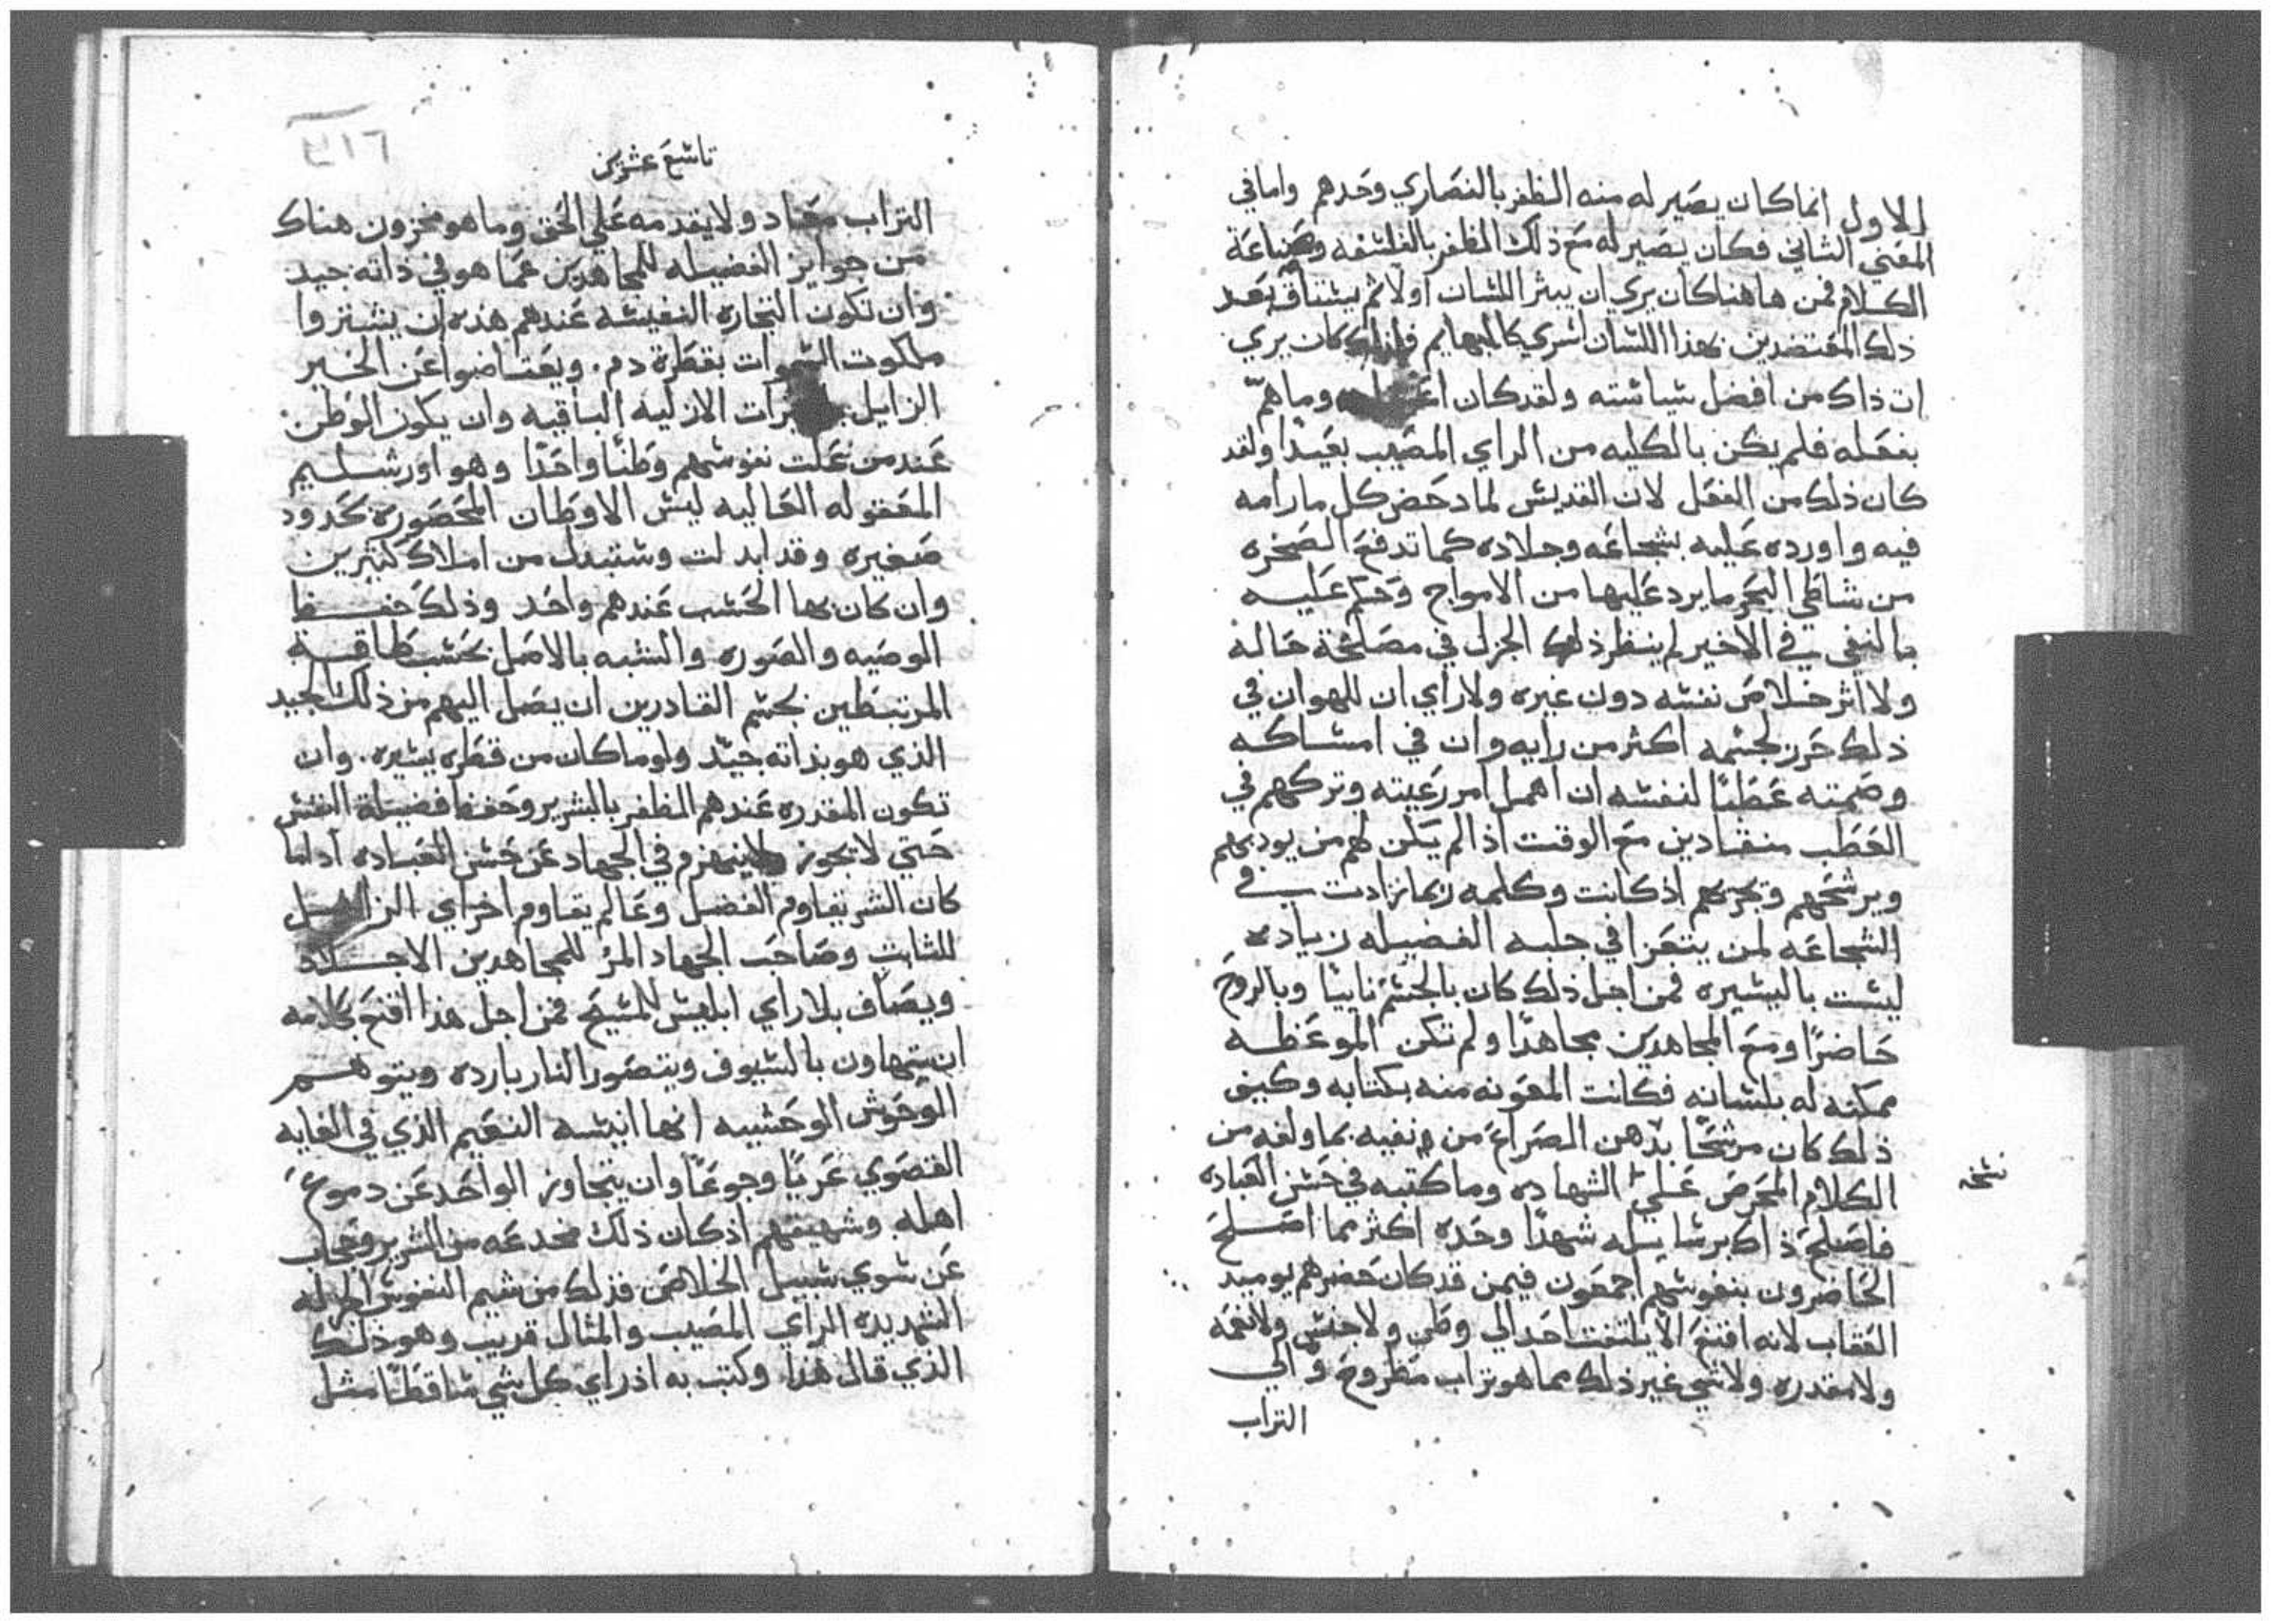 الاول انما كان يصير له منه الظفر بالنصاري وحدهم واما في
المعني الثاني فكان يصير له مع ذلك الظفر بالفلسفه وصناعة
الكلام فمن هاهنا كان يري ان يبتر اللسان اولا ثم يستاق بعد
ذلك المعتضدين بهذا اللسان اسري كالبهايم كان يري
ان ذاك من افضل سياسته ولقد كان وما هم
بفعله فلم يكن بالكليه من الراي المصيب بعيدا ولقد
كان ذلك من الفعل لان القديس لما دحض كل ما رامه
فيه واورده عليه بشجاعه وجلاده كما تدفع الصخره
من شاطي البحر ما يرد عليها من الامواج وحكم عليه
بالنفي في الاخير لم ينظر ذلك الجزل في مصلحة حاله
ولا اثر خلاص نفسه دون غيره ولا راي ان للهوان في
ذلك حرز لجسمه اكثر من رايه وان في امساكه
وصمته عطبا لنفسه ان اهمل امر رعيته وتركهم في
العطب منقادين مع الوقت اذ الم يكن لهم من يوديهم
ويرشحهم وتجريهم اذ كانت وكلمه ربما زادت في
الشجاعه لمن يتعزا في حلبه الفضيله زياده
ليست باليسيره فمن اجل ذلك كان بالجسم نابيا وبالروح
حاضرا ومع المجاهدين مجاهدا ولم تكن الموعظه
ممكنه له بلسانه فكانت المعونه منه بكتابه وكيف
ذلك كان مرشحا بدهن الصراع من نفيه بما ولفه من
الكلام المحرض علي الشهاده وما كتبه في حسن العباده
نسخه
فاصلح ذاك برسايله شهدا وحده اكثر مما اصلح
الحاضرون بنفوسهم اجمعون فيمن قد كان حضرهم يوميد
العقاب لانه اقنع الا يلتفت احد الي وطن ولا جنس ولا نعمه
ولا مقدره ولا شي غير ذلك مما هو تراب مطروح والي
التراب
تاسع عشرين
٣١٦
التراب معاد ولا يقدمه علي الحق وما هو مخزون هناك
من جوايز الفضيله للمجاهدين عما هو في ذاته جيد
وان تكون التجاره النفيسه عندهم هذه ان يشتروا
ملكوت السموات بقطرة دم. ويعتاضوا عن الخير
الزايل الازليه الباقيه وان يكون الوطن
عند من علت نفوسهم وطنا واحدا وهو اورشليم
المعقوله العاليه ليس الاوطان المحصوره بحدود
صغيره وقد ابدلت وستبدل من املاك كثيرين
وان كان بها الحسب عندهم واحد وذلك حفظ
الوصيه والصوره والشبه بالاصل بحسب طاقة
المرتبطين بجسم القادرين ان يصل اليهم من ذلك الجيد
الذي هو بذاته جيد ولو ما كان من قطره يسيره. وان
تكون المقدره عندهم الظفر بالشرير وحفظ فضيلة النفس
حتي لا تجوز ولا ينهزم في الجهاد عن حسن العباده اذ لما
كان الشر يقاوم الفضل وعالم يقاوم اخر اي الزايل
للثابت وصاحب الجهاد المر للمجاهدين الاجلاد
ويصاف بلا راي ابليس للمسيح فمن اجل هذا اقنع بكلامه
ان يتهاون بالسيوف ويتصور النار بارده ويتوهم
الوحوش الوحشيه انها انيسه النعيم الذي في الغايه
القصوي عريا وجوعا وان يتجاوز الواحد عن دموع
اهله وشهيقهم اذ كان ذلك مخدعه من الشرير وحجاب
عن سوي سبيل الخلاص فذلك من شيم النفوس الجزله
الشديده الراي المصيب والمثال قريب وهو ذلك
الذي قال هذا وكتب به اذ راي كل شي ساقطا مثل